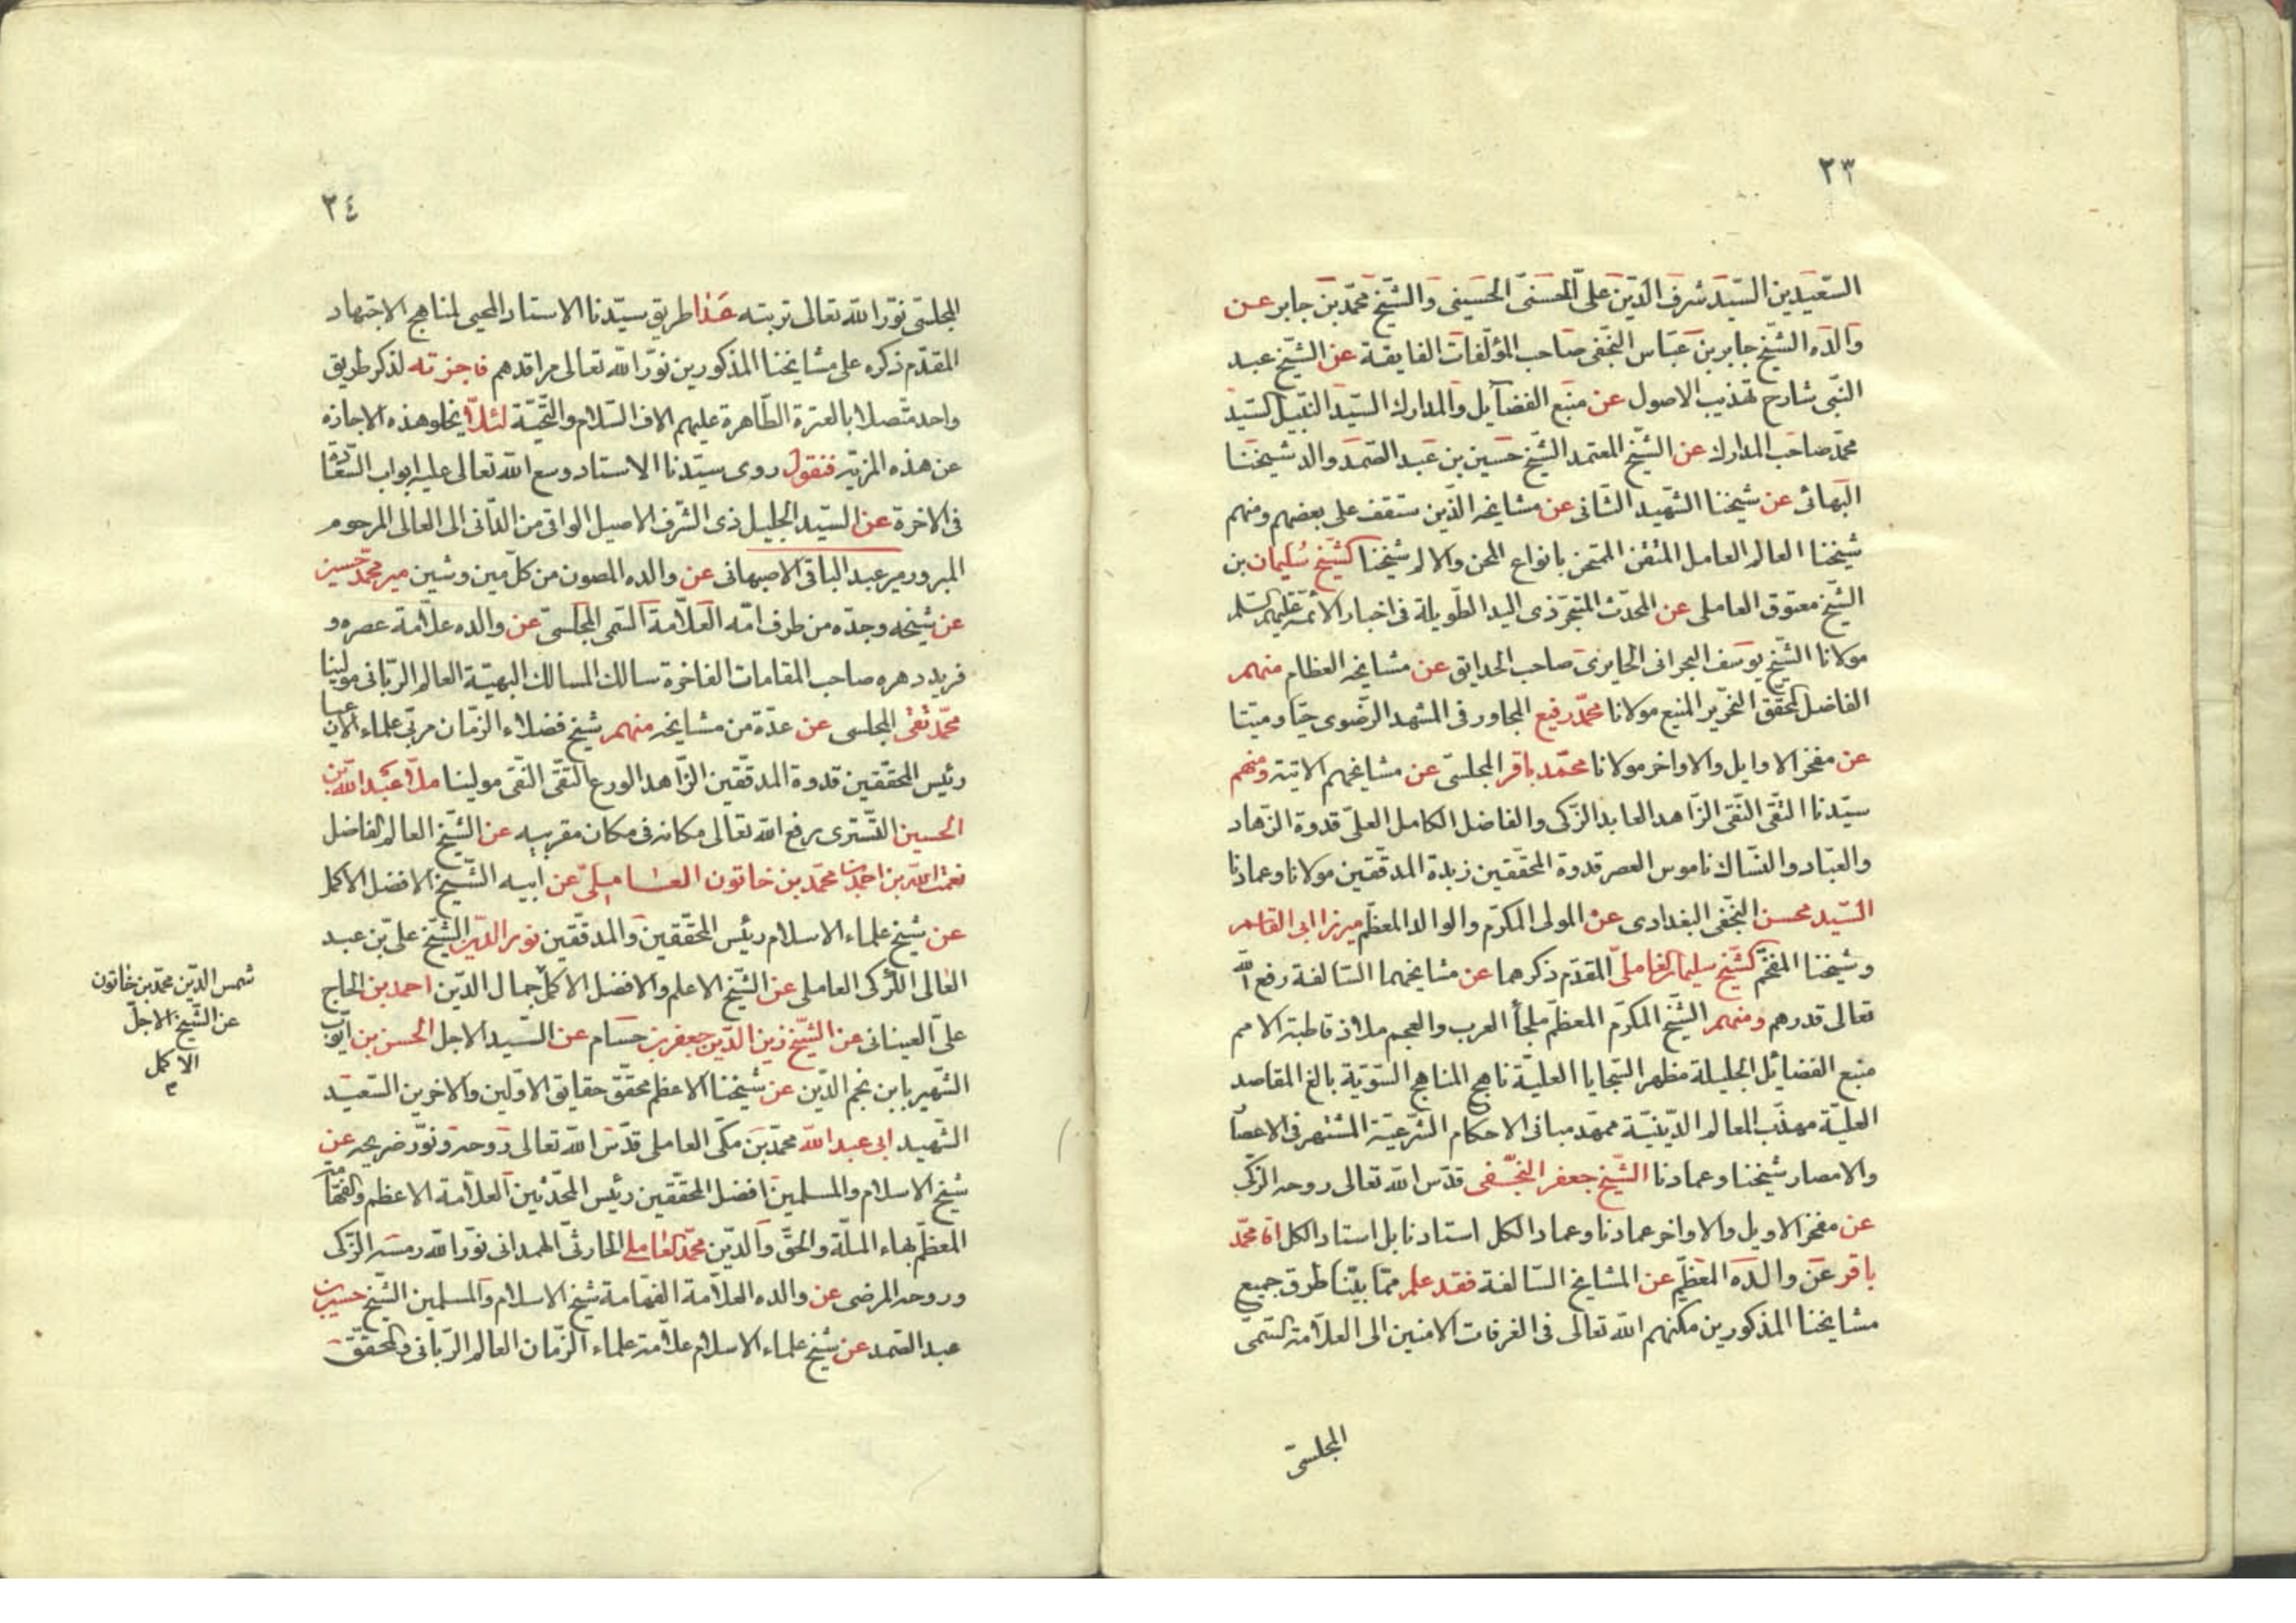 ٢٣
السّعيدين السّيّد شرف الدّين علىّ الحسنىّ الحسينى والشّيخ محمّد بن جابر عن
والده الشّيخ جابر بن عبّاس النّجفى صاحب المؤلّفات الفايقة عن الشّيخ عبد
النّبى شارح تهذيب الاصول عن منبع الفضآيل والمدارك السّيّد النّبيل السّيد
محمّد صاحب المدارك عن الشّيخ المعتمد الشّيخ حسين بن عبد الصّمد والد شيخنا
البهائى عن شيخنا الشّهيد الثّانى عن مشايخه الّذين ستقف على بعضهم ومنهم
شيخنا العالم العامل المتقن الممتحن بانواع المحن والالم شيخنا الشّيخ سليمان بن
الشّيخ معتوق العاملى عن المحدّث المتبحّر ذى اليد الطّويلة فى اخبار الائمّة عليهم السّلم
مولانا الشّيخ يوسف البحرانى الحايرى صاحب الحدايق عن مشايخه العظام منهم
الفاضل المحقّق النّحرير المنيع مولانا محمّد رفيع المجاور فى المشهد الرّضوى حيّا وميّتا
عن مفخر الاوايل والاواخر مولانا محمّد باقر المجلسىّ عن مشايخهم الاتية ومنهم
سيّدنا التّقى النّقى الزّاهد العابد الزّكى والفاضل الكامل العلىّ قدوة الزّهاد
والعبّاد والنسّاك ناموس العصر قدوة المحقّقين زبدة المدقّقين مولانا وعمادنا
السّيد محسن النّجفى البغدادى عن المولى المكرّم والوالد المعظّم ميرزا ابى القاسم
وشيخنا المفخّم الشّيخ سليمان العاملىّ المقدّم ذكرهما عن مشايخهما السّالفة رفع الله
تعالى قدرهم ومنهم الشّيخ المكرّم المعظّم ملجأ العرب والعجم ملاذ قاطبة الامم
منبع الفضائل الجليلة مظهر السّجايا العليّة ناهج المناهج السّويّة بالغ المقاصد
العليّة مهذّب المعالم الدّينيّة ممهّد مبانى الاحكام الشّرعيّة المشتهر فى الاعصار
والامصار شيخنا وعمادنا الشّيخ جعفر النّجفى قدّس الله تعالى روحه الزّكىّ
عن مفخر الاويل والاواخر عمادنا وعماد الكل استادنا بل استاد الكل اقا محمّد
باقر عن والده المعظّم عن المشايخ السّالفة فقد علم ممّا بيّنّا طرق جميع
مشايخنا المذكورين مكنهم الله تعالى فى الغرفات الامنين الى العلّامة السّمى
المجلسىّ
٢٤
المجلسّى نوّر الله تعالى تربته هذا طريق سيّدنا الاستاد المحيى لمناهج الاجتهاد
المقدّم ذكره على مشايخنا المذكورين نوّر الله تعالى مراقدهم فاجزته لذكر طريق
واحد متّصلا بالعترة الطّاهرة عليهم الاف السّلام والتّحيّة لئلّا يخلو هذه الاجازه
عن هذه المزيّة فنقول روى سيّدنا الاستاد وسع الله تعالى عليه ابواب السّعادة
فى الاخرة عن السّيد الجليل ذى الشّرف الاصيل الواتى من الدّانى الى العالى المرحوم
المبرور مير عبد الباقى الاصبهانى عن والده المصون من كلّ مين وشين مير محمّد حسين
عن شيخه وجدّه من طرف امّه العلّامة السّمى المجلسى عن والده علّامة عصره و
فريد دهره صاحب المقامات الفاخرة سالك المسالك البهيّة العالم الرّبّانى مولينا
محمّد تقى المجلسى عن عدّة من مشايخه منهم شيخ فضلاء الزّمان مربّى علماء الاعيان
رئيس المحقّقين قدوة المدقّقين الزّاهد الورع التّقىّ النّقى مولينا ملّا عبد الله بن
الحسين التّسترى رفع الله تعالى مكانه فى مكان مقربيه عن الشّيخ العالم الفاضل
نعمت الله بن احمد بن محمّد بن خاتون العاملىّ عن ابيه الشّيخ الافضل الاكمل
عن شيخ علماء الاسلام رئيس المحقّقين والمدقّقين نور الدّين الشّيخ علىّ بن عبد
العالى الكركى العاملى عن الشّيخ الاعلم والافضل الاكمل جمال الدّين احمد بن الحاج
علىّ العيناثى عن الشّيخ زين الدّين جعفر بن حسام عن السّيد الاجل الحسن بن ايّوب
الشّهير بابن نجم الدّين عن شيخنا الاعظم محقّق حقايق الاوّلين والاخرين السّعيد
الشّهيد ابى عبد الله محمّد بن مكّى العاملى قدّس الله تعالى روحه ونوّر ضريحه عن
شيخ الاسلام والمسلمين افضل المحقّقين رئيس المحدّثين العلّامة الاعظم والفهّامة
المعظّم بهاء الملّة والحقّ والدّين محمّد العاملى الحارثىّ الهمدانى نوّر الله رمسه الزّكى
وروحه المرضى عن والده العلّامة الفهّامة شيخ الاسلام والمسلمين الشّيخ حسين بن
عبد الصّمد عن شيخ علماء الاسلام علّامة علماء الزّمان العالم الرّبّانى والمحقّق
شمس الدّين محمّد بن خاتون
عن الشّيخ الاجلّ
الاكمل